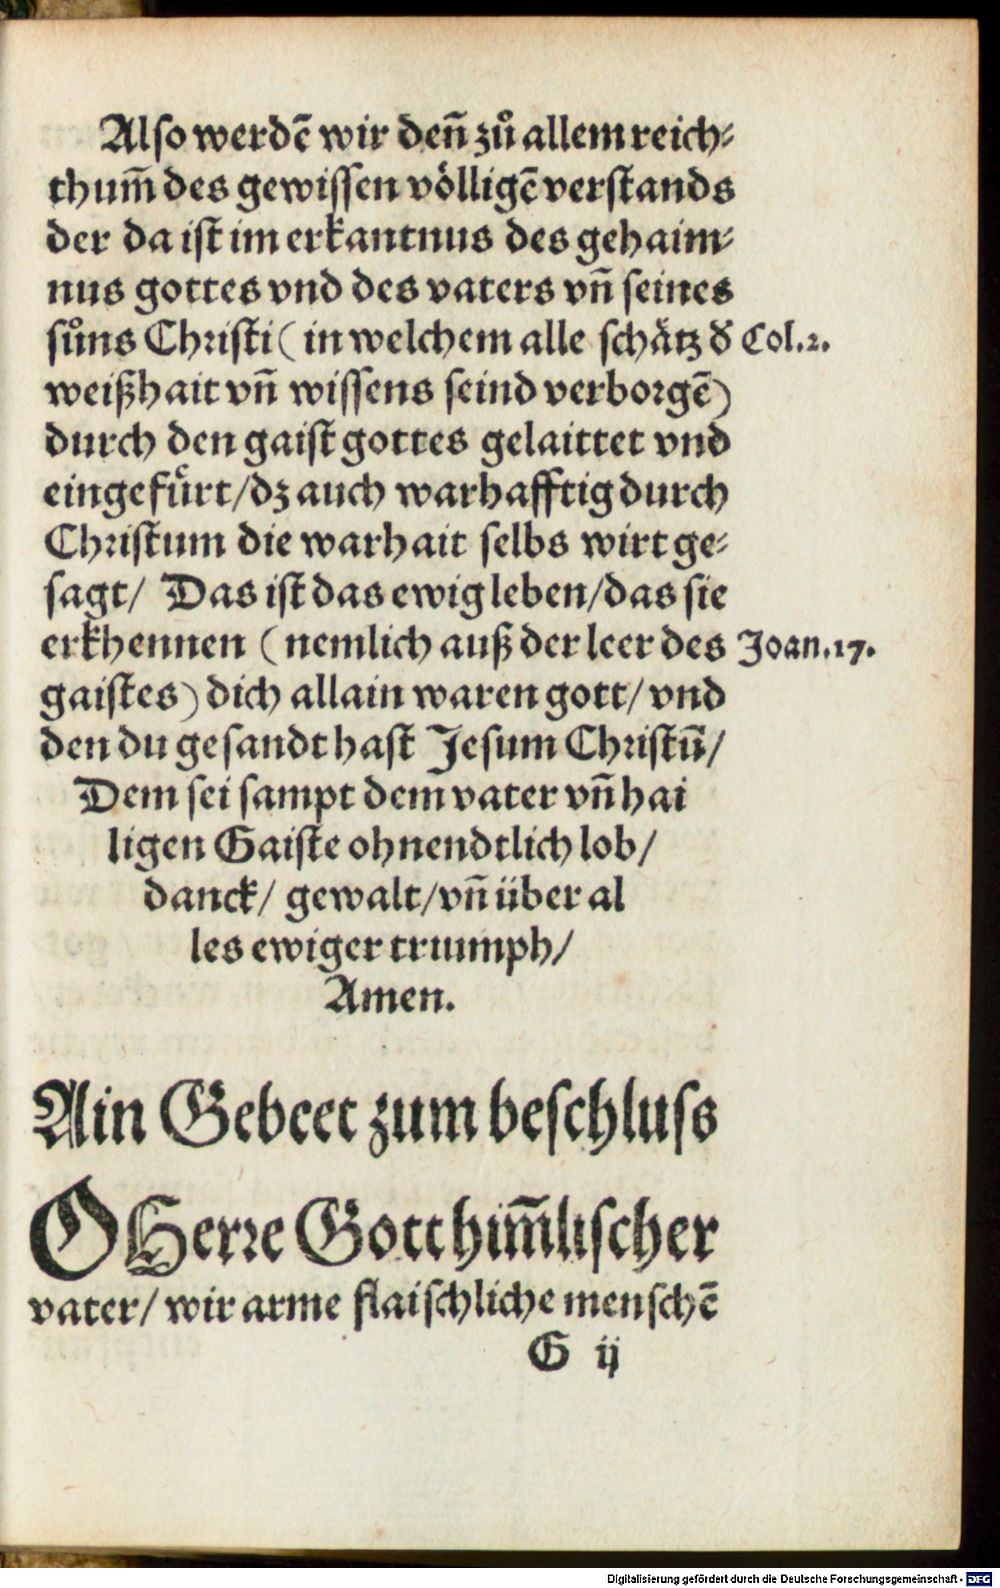 Also werdē wir deñ zů allem reich⸗
thum̄ des gewissen völligē verstands
der da ist im erkantnus des gehaim⸗
nus gottes vnd des vaters vñ seines
sůns Christi ( in welchem alle schätz d̕ Col.2.
weißhait vñ wissens seind verborgē)
durch den gaist gottes gelaittet vnd
eingefürt/dz auch warhafftig durch
Christum die warhait selbs wirt ge⸗
sagt/ Das ist das ewig leben/das sie
erkhennen ( nemlich auß der leer des Joan.17.
gaistes) dich allain waren gott/ vnd
den du gesandt hast Jesum Christū/
Dem sei sampt dem̄ vater vñ hai
ligen Gaiste ohnendtlich lob/
danck/ gewalt/vñ über al
les ewiger triumph/
Amen.
Ain Gebeet zum beschluss
O Herre Gott him̄lischer
vater/ wir arme flaischliche menschē
G ij
Digitalisierung gefördert durch die Deutsche Forschungsgemeinschaft - DFG